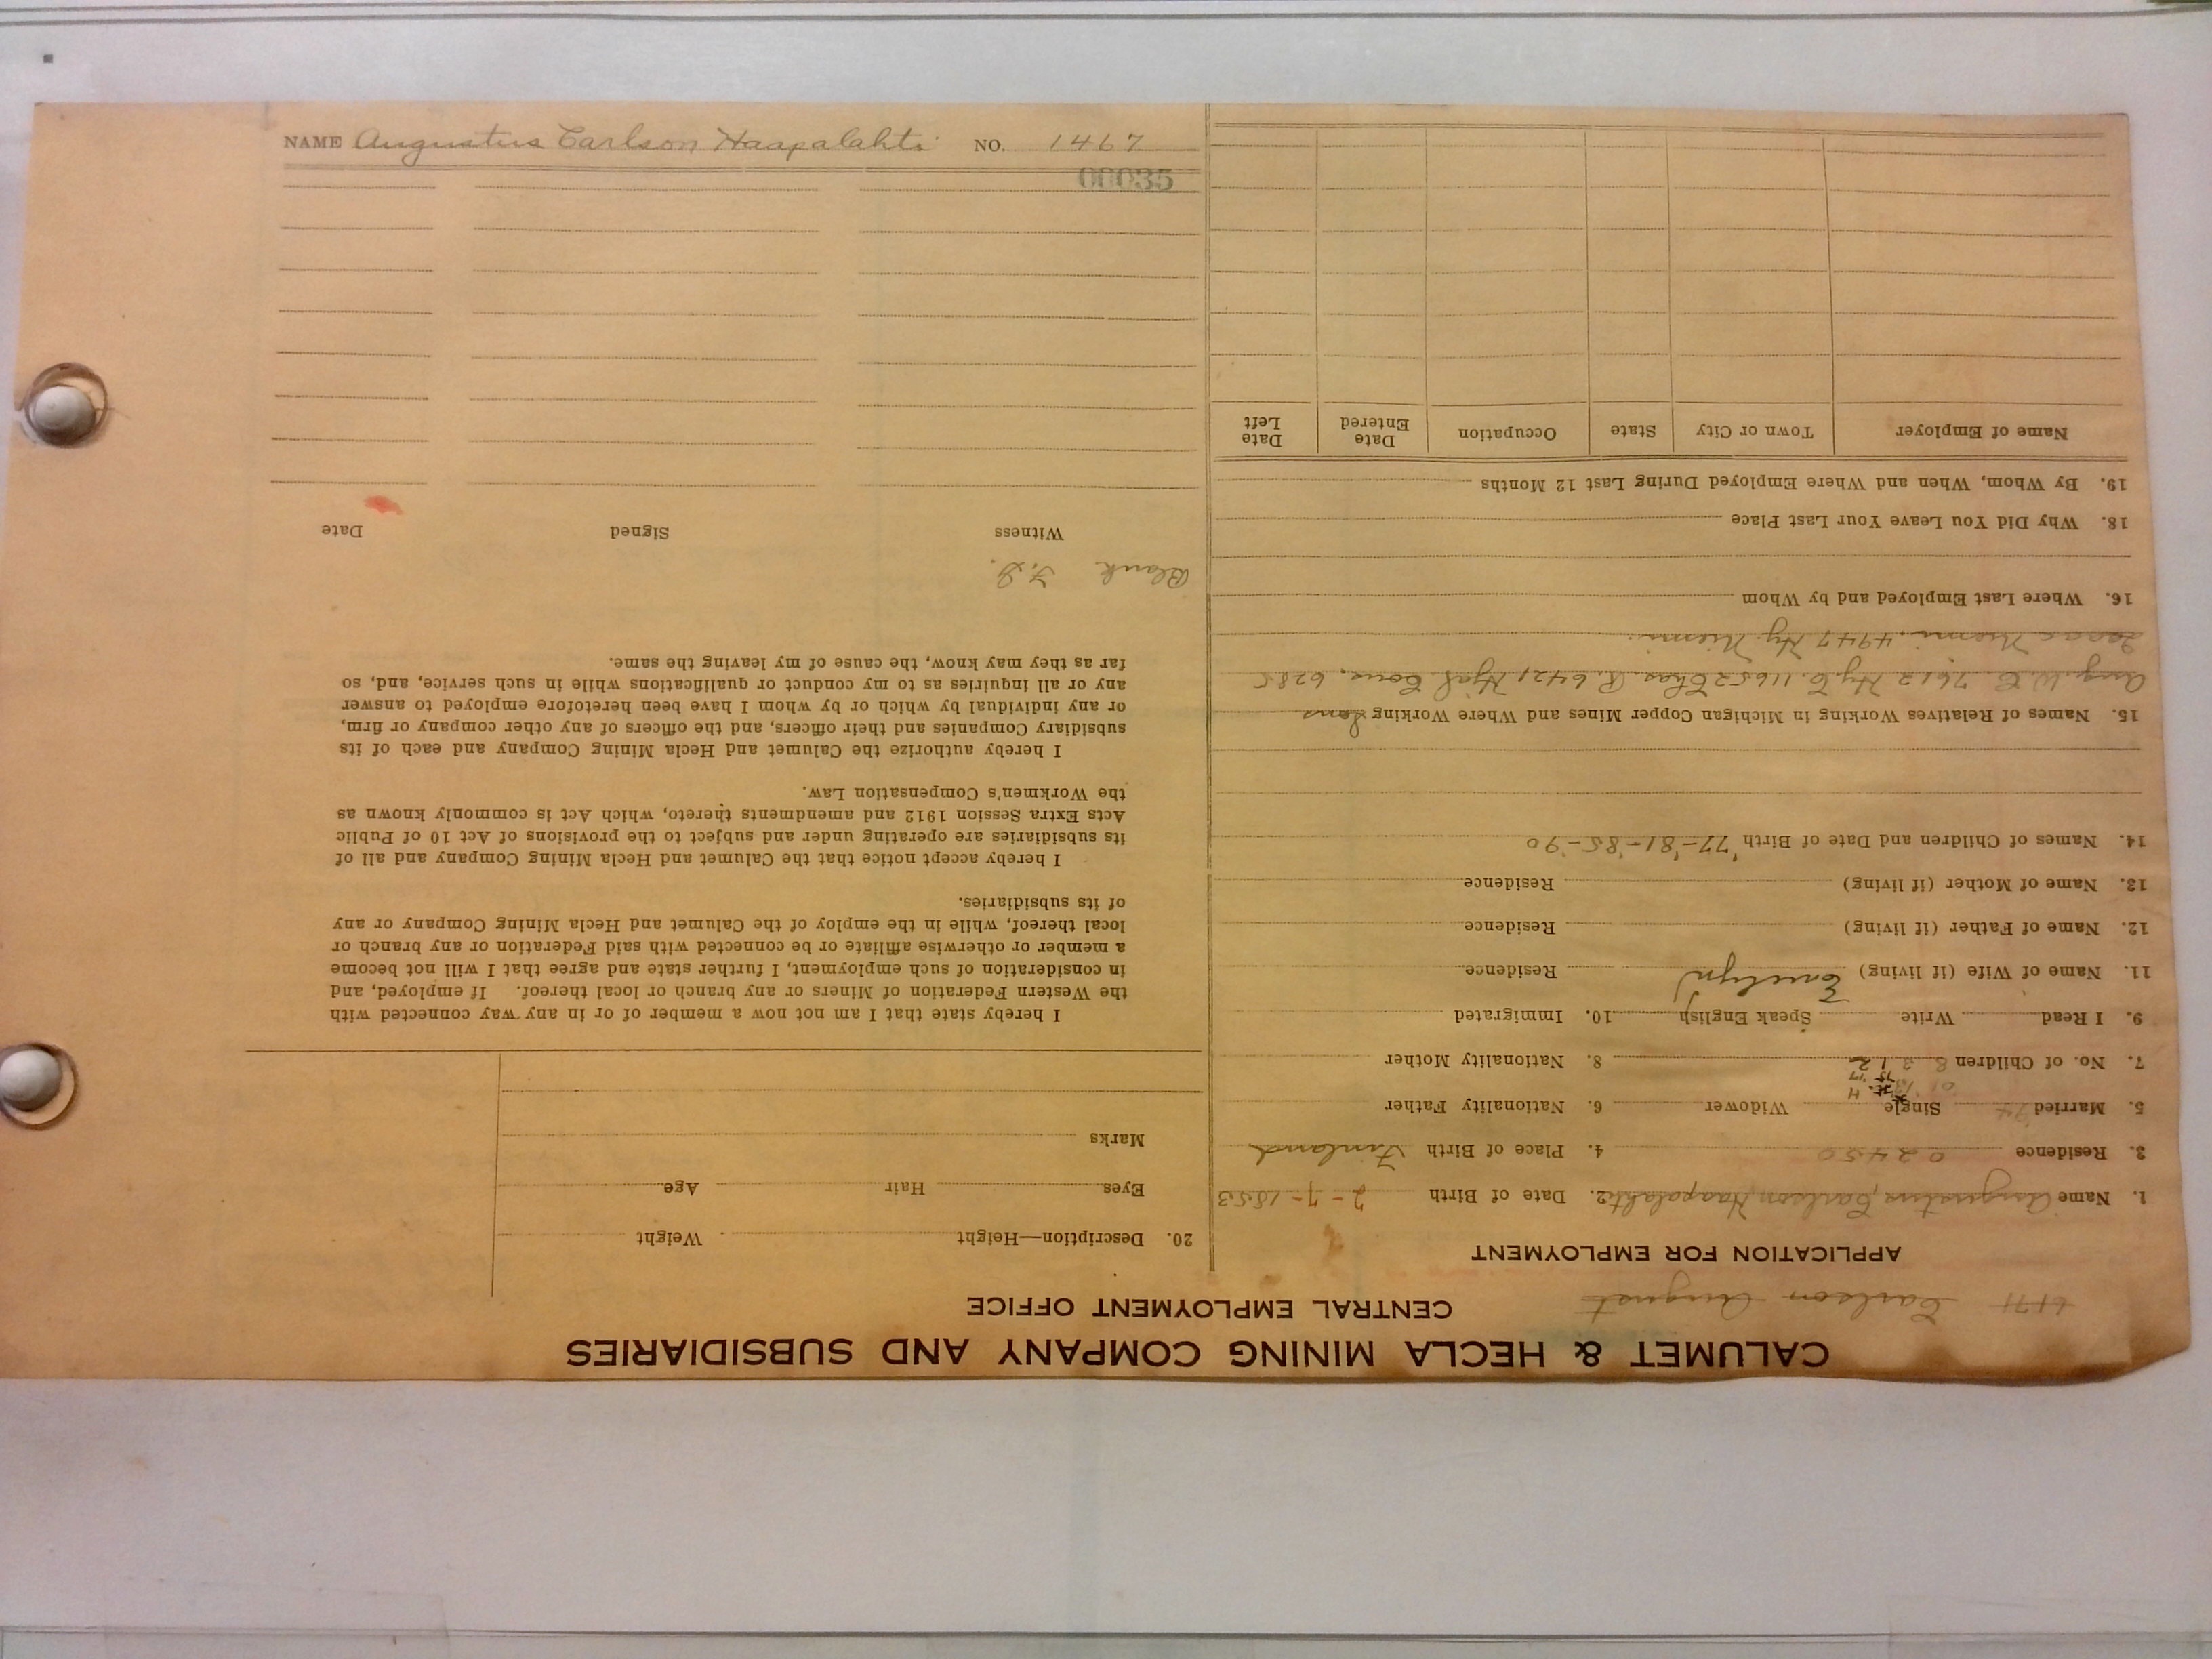 CALUMET & HECLA MINING COMPANY AND SUBSIDIARIES
CENTRAL EMPLOYMENT OFFICE
Carlson August
APPLICATION FOR EMPLOYMENT
1. Name Augustus Carlson Haapalahti 2. Date of Birth 7-7-1853
3. Residence 02450 4. Place of Birth Finland
5. Married 74 Single Widower 6. Nationality Father
7. No. of Children 8 3 1 2 8. Nationality Mother
9. I Read Write Speak English 10. Immigrated
11. Name of Wife (if living) Evelyn Residence
12. Name of Father (if living) Residence
13. Name of Mother (if living) Residence
14. Names of Children and Date of Birth '77-'81-'85-'90
15. Names of Relatives Working in Michigan Copper Mines and Where Working Sons
Aug. W. C. 7612 Hy. C. 11652 Chas. R. 6421, Hjal. 6285
Isaac Niemi, 4947 Hy. Niemi
16. Where Last Employed and by Whom
18. Why Did You Leave Your Last Place
19. By Whom, When and Where Employed During Last 12 Months
Name of Employer Town or City State Occupation Date Entered Date Left
20. Description—Height Weight
Eyes Hair Age
Marks
I hereby state that I am not now a member of or in any way connected with
the Western Federation of Miners or any branch or local thereof. If employed, and
in consideration of such employment, I further state and agree that I will not become
a member or otherwise affiliate or be connected with said Federation or any branch or
local thereof, while in the employ of the Calumet and Hecla Mining Company or any
of its subsidiaries.
I hereby accept notice that the Calumet and Hecla Mining Company and all of
its subsidiaries are operating under and subject to the provisions of Act 10 of Public
Acts Extra Session 1912 and amendments thereto, which Act is commonly known as
the Workmen's Compensation Law.
I hereby authorize the Calumet and Hecla Mining Company and each of its
subsidiary Companies and their officers, and the officers of any other company or firm,
or any individual by which or by whom I have been heretofore employed to answer
any or all inquiries as to my conduct or qualifications while in such service, and, so
far as they may know, the cause of my leaving the same.
Blank F.S.
Witness Signed Date
00035
NAME Augustus Carlson Haapalahti NO. 1467